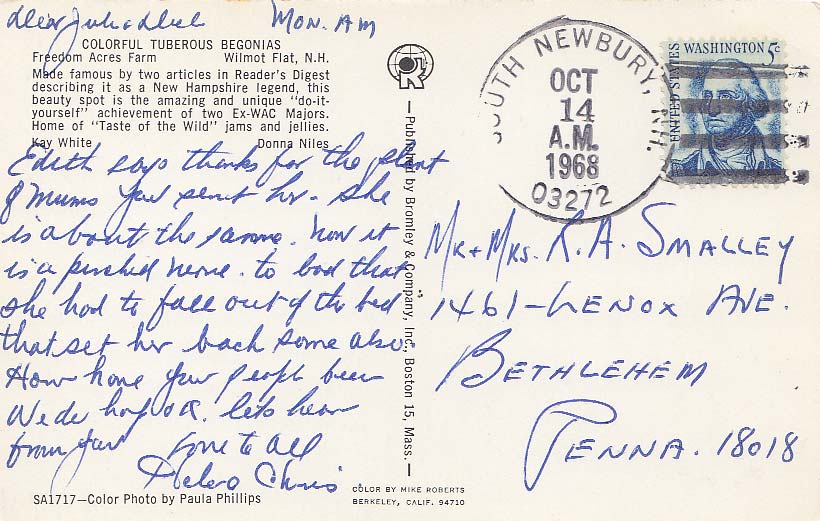 Mon. AM
COLORFUL TUBEROUS BEGONIAS
Freedom Acres Farm Wilmot Flat, N.H.
Made famous by two articles in Reader's Digest
describing it as a New Hampshire legend, this
beauty spot is the amazing and unique "do-it-
yourself" achievement of two Ex-WAC Majors.
Home of "Taste of the Wild" jams and jellies.
Kay White Donna Niles
Edith says thanks for the plant
of Mums you sent her. She
is about the same. Now it
is a pinched nerve. to bad that
she had to fall out of the bed
that set her back some also.
How have your people been
We do hope OK. lets hear
from you Love to all
Helen Chris
SA1717—Color Photo by Paula Phillips
— Published by Bromley & Company, Inc., Boston 15, Mass. —
COLOR BY MIKE ROBERTS
BERKELEY, CALIF. 94710
SOUTH NEWBURY, N.H.
OCT
14
A.M.
1968
03272
WASHINGTON 5c
UNITED STATES
Mr + Mrs. R. A. Smalley
1461 - Lenox Ave.
Bethlehem
Penna. 18018